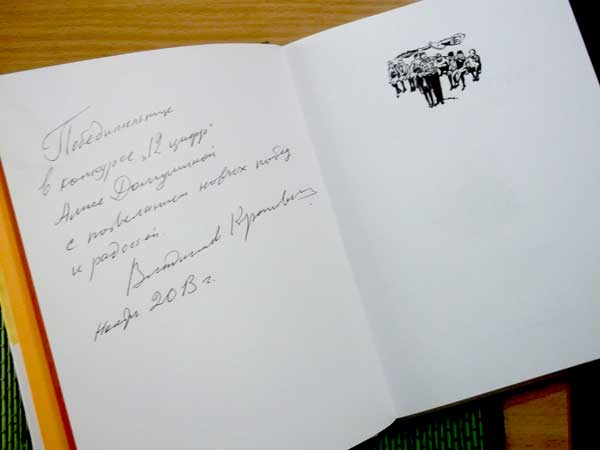 Победительнице
в конкурсе „12 цифр"
Алисе
с пожеланием новых побед
и радостей.
Владислав Крапивин
Ноябрь 2013 г.